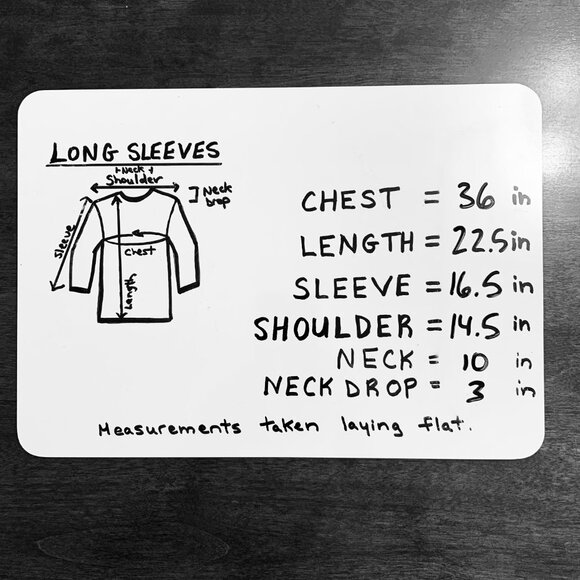 LONG SLEEVES
Neck
Shoulder
Neck Drop
Sleeve
Chest
Length
CHEST = 36 in
LENGTH = 22.5 in
SLEEVE = 16.5 in
SHOULDER = 14.5 in
NECK = 10 in
NECK DROP = 3 in
Measurements taken laying flat.